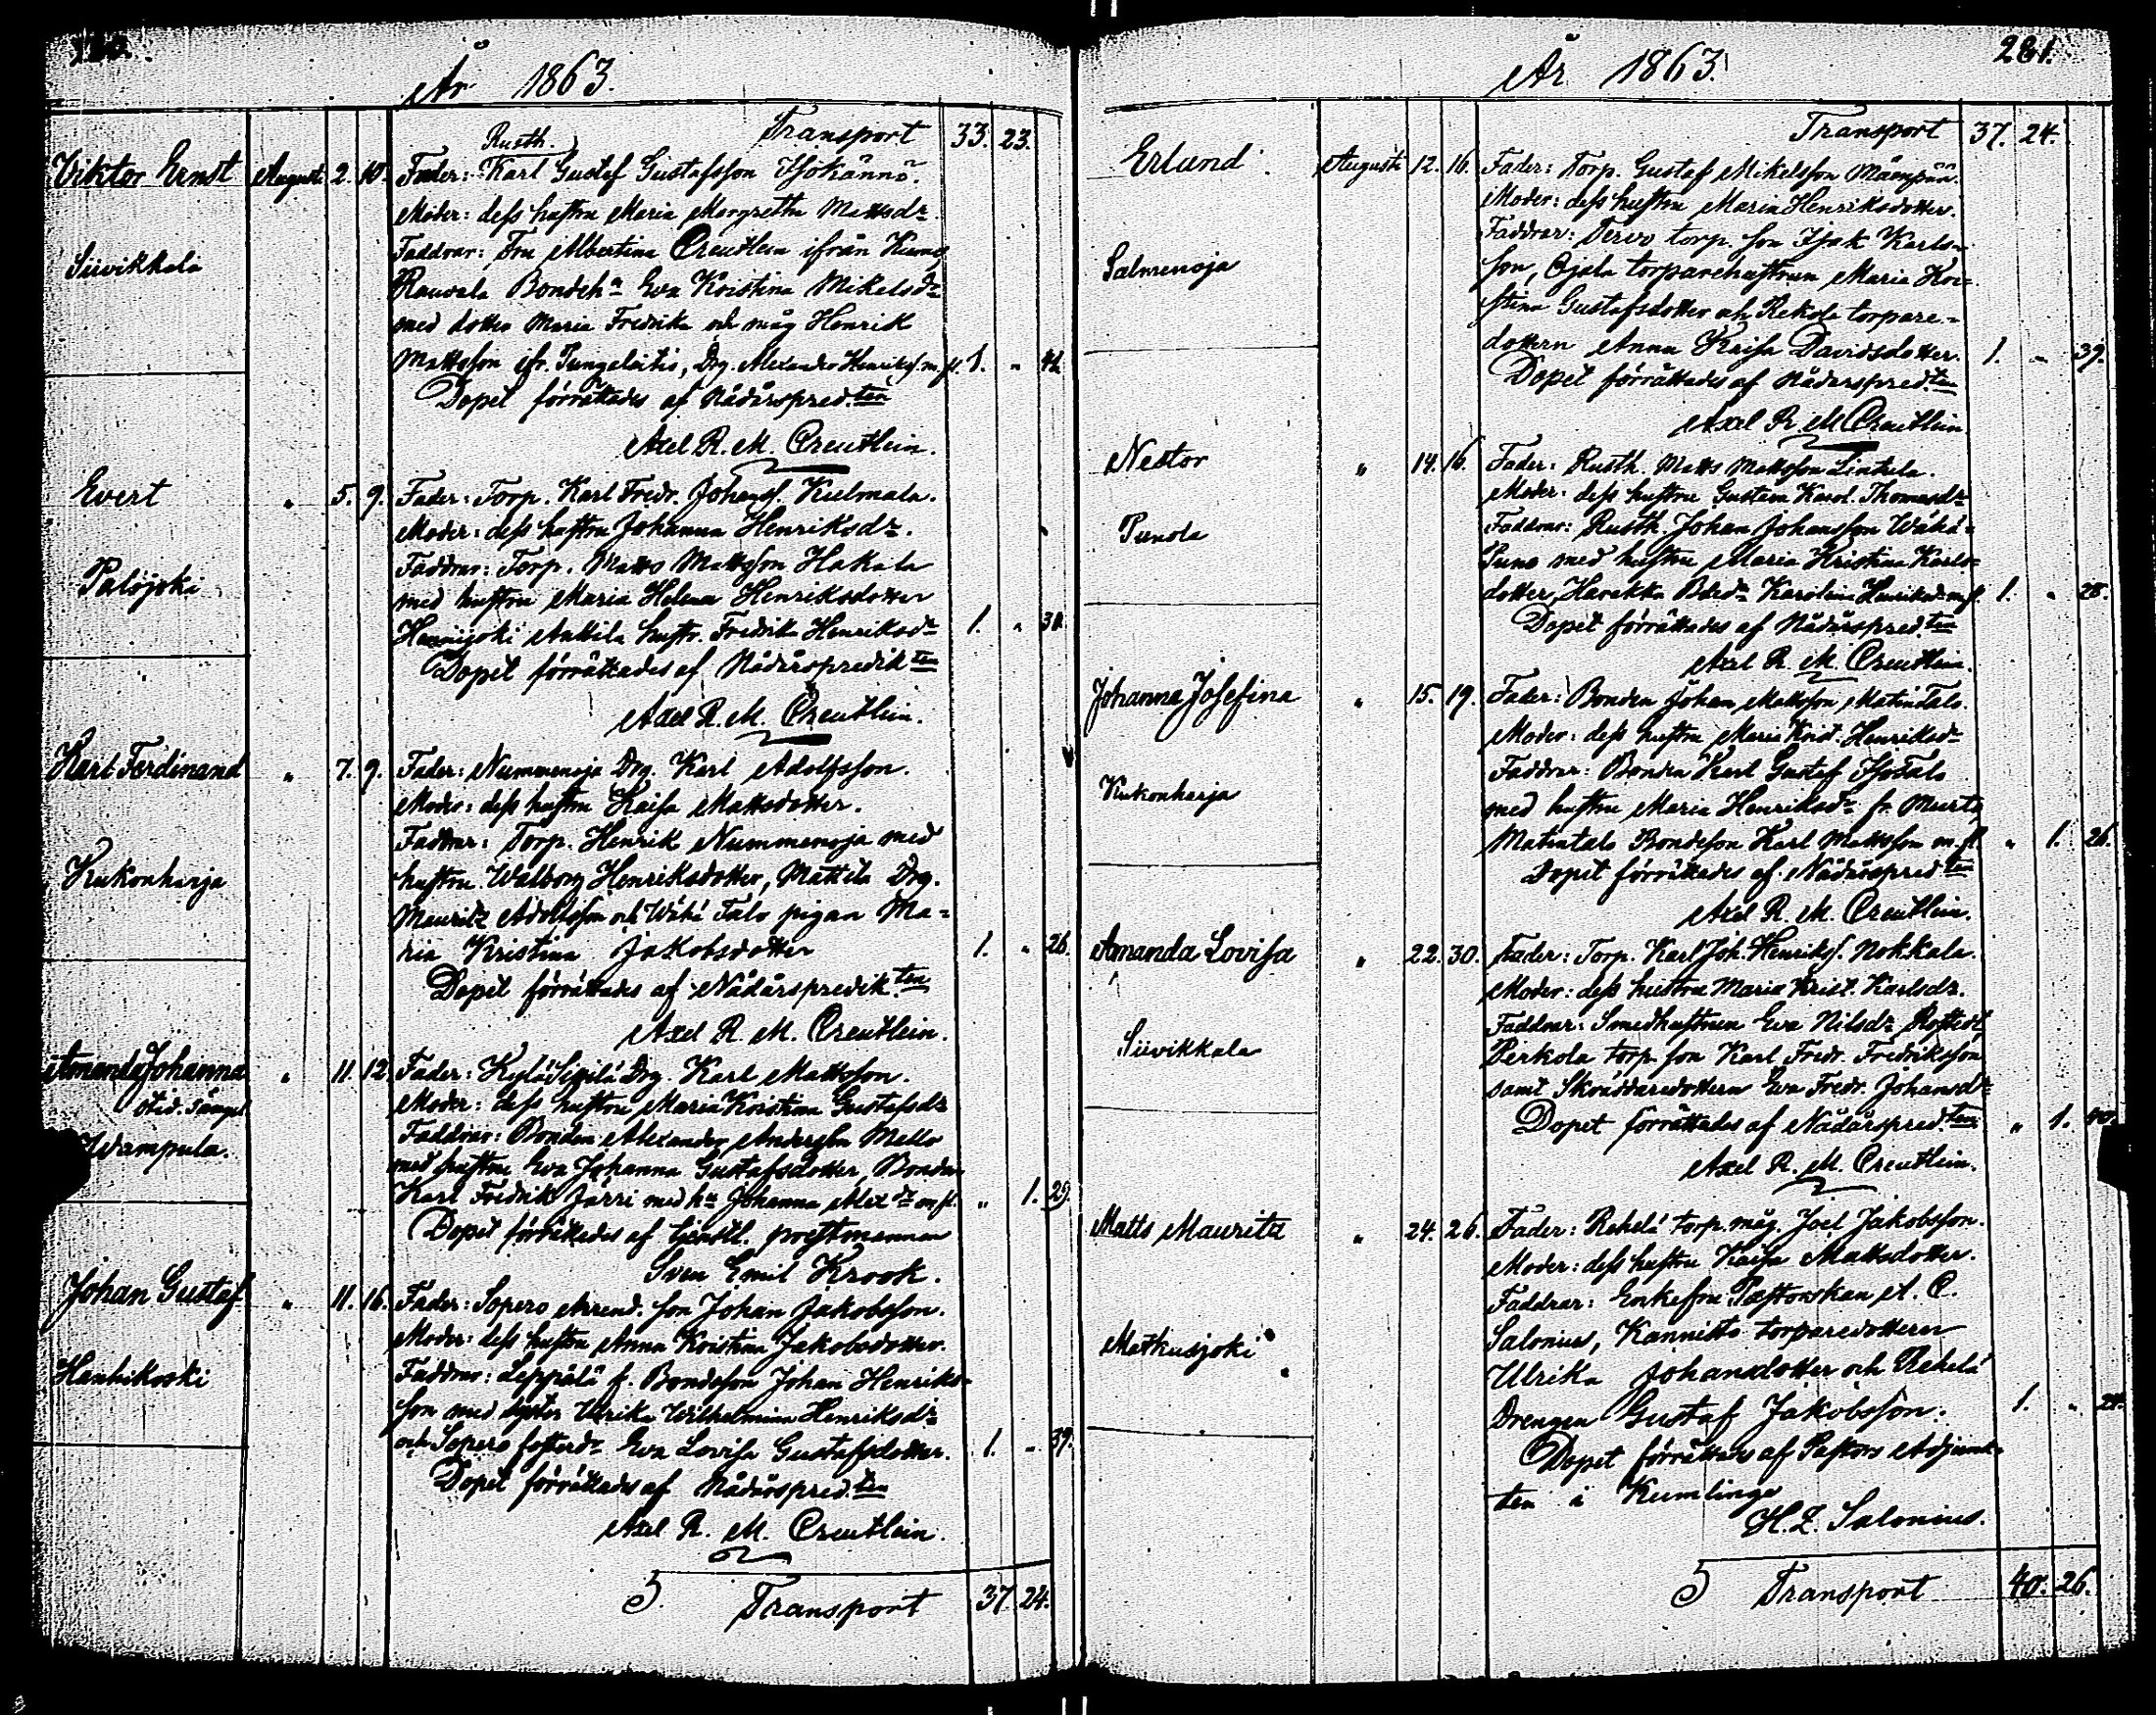 År 1863.
Transport 33. 23.
Rusth.
Viktor Ernst Augusti 2. 10. Fader: Karl Gustaf Gustafsson Isokännö.
Moder: dess hustru Maria Margretha Mattsdr.
Siivikkala
Faddrar: Fru Albertina Creutlein ifrån Kumo,
Rauvala Bondeh:n Eva Kristina Mikelsdr
med dotter Maria Fredrika och måg Henrik
Mattsson ifr. Sungelaitis, Drg. Alexander Henrikss. m. fl. 1. „ 42.
Dopet förrättades af Nådårspred.ten
Axel R. M. Creutlein.
Evert „ 5. 9. Fader: Torp. Karl Fredr. Johanss. Kulmala.
Moder: dess hustru Johanna Henriksdr.
Palojoki
Faddrar: Torp. Matts Mattsson Hakala
med hustru Maria Helena Henriksdotter
Hennijoki Anttila hustr. Fredrika Henriksdr 1. „ 30.
Dopet förrättades af Nådårspredik.ten
Axel R. M. Creutlein.
Karl Ferdinand „ 7. 9. Fader: Nummenoja Drg. Karl Adolfsson.
Moder: dess hustru Kaisa Mattsdotter.
Kukonharja
Faddrar: Torp. Henrik Nummenoja med
hustru Walborg Henriksdotter, Mattila Drg.
Mauritz Adolfsson och Wähä Talo pigan Ma-
ria Kristina Jakobsdotter 1. „ 26.
Dopet förrättades af Nådårspredik.ten
Axel R. M. Creutlein.
Amanda Johanna „ 11. 12. Fader: Kylä Sipilä Drg. Karl Mattsson.
Moder: dess hustru Maria Kristina Gustafsdr
Wampula.
Faddrar: Bonden Alexander Andersson Mello
med hustru Eva Johanna Gustafsdotter, Bonden
Karl Fredrik Jarri med h:u Johanna Alex.dr m. fl. „ 1. 29.
Dopet förrättades af tjenstl. prestmannen
Sven Emil Krook.
Johan Gustaf „ 11. 16. Fader: Sopero Arrend. son Johan Jakobsson.
Moder: dess hustru Anna Kristina Jakobsdotter.
Hanhikoski
Faddrar: Leppälä f. Bondeson Johan Henriks-
son med syster Ulrika Wilhelmina Henriksdr
och Sopero fosterdr Eva Lovisa Gustafsdotter. 1. „ 39.
Dopet förrättades af Nådårspred.ten
Axel R. M. Creutlein.
5. Transport 37. 24.
År 1863. 281.
Transport 37. 24.
Erlund Augusti 12. 16. Fader: Torp. Gustaf Mikelsson Mäenpää.
Moder: dess hustru Maria Henriksdotter.
Salmenoja
Faddrar: Tervo torp. son Isak Karls-
son, Ojala torparehustrun Maria Kri-
stina Gustafsdotter och Rekola torpare-
dottern Anna Kaisa Davidsdotter. 1. „ 39.
Dopet förrättades af Nådårspred.ten
Axel R. M. Creutlein.
Nestor „ 14. 16. Fader: Rusth. Matts Mattsson Lintula.
Moder: dess hustru Gustava Karol. Thomasdr
Punola
Faddrar: Rusth. Johan Johansson Wähä-
Simo med hustru Maria Kristina Karls-
dotter, Harakka Bdedr Karolina Henriksd. m. fl. 1. „ 28.
Dopet förrättades af Nådårspred.ten
Axel R. M. Creutlein.
Johanna Josefina „ 15. 19. Fader: Bonden Johan Mattsson Matintalo.
Moder: dess hustru Maria Krist. Henriksdr
Kukonharja
Faddrar: Bonden Karl Gustaf Isotalo
med hustru Maria Henriksdr fr. Murto,
Matintalo Bondeson Karl Mattsson m. fl. „ 1. 26.
Dopet förrättades af Nådårspred.ten
Axel R. M. Creutlein.
Amanda Lovisa „ 22. 30. Fader: Torp. Karl Joh. Henrikss. Nokkala.
Moder: dess hustru Maria Krist. Karlsdr.
Siivikkala
Faddrar: Smedhustrun Eva Nilsdr Rostedt
Perkola torp. son Karl Fredr. Fredriksson
samt Skräddaredottern Eva Fredr. Johansdr
Dopet förrättades af Nådårspred.ten „ 1. 40.
Axel R. M. Creutlein.
Matts Mauritz „ 24. 26. Fader: Rekelä torp. måg. Joel Jakobsson.
Moder: dess hustru Kaisa Mattsdotter.
Matkusjoki
Faddrar: Enkefru Pastorskan A. C.
Salonius, Kannisto torparedottern
Ulrika Johansdotter och Rekelä
Drengen Gustaf Jakobsson. 1. „ 24.
Dopet förrättades af Pastors Adjunk-
ten i Kumlinge
H. Z. Salonius.
5 Transport 40. 26.